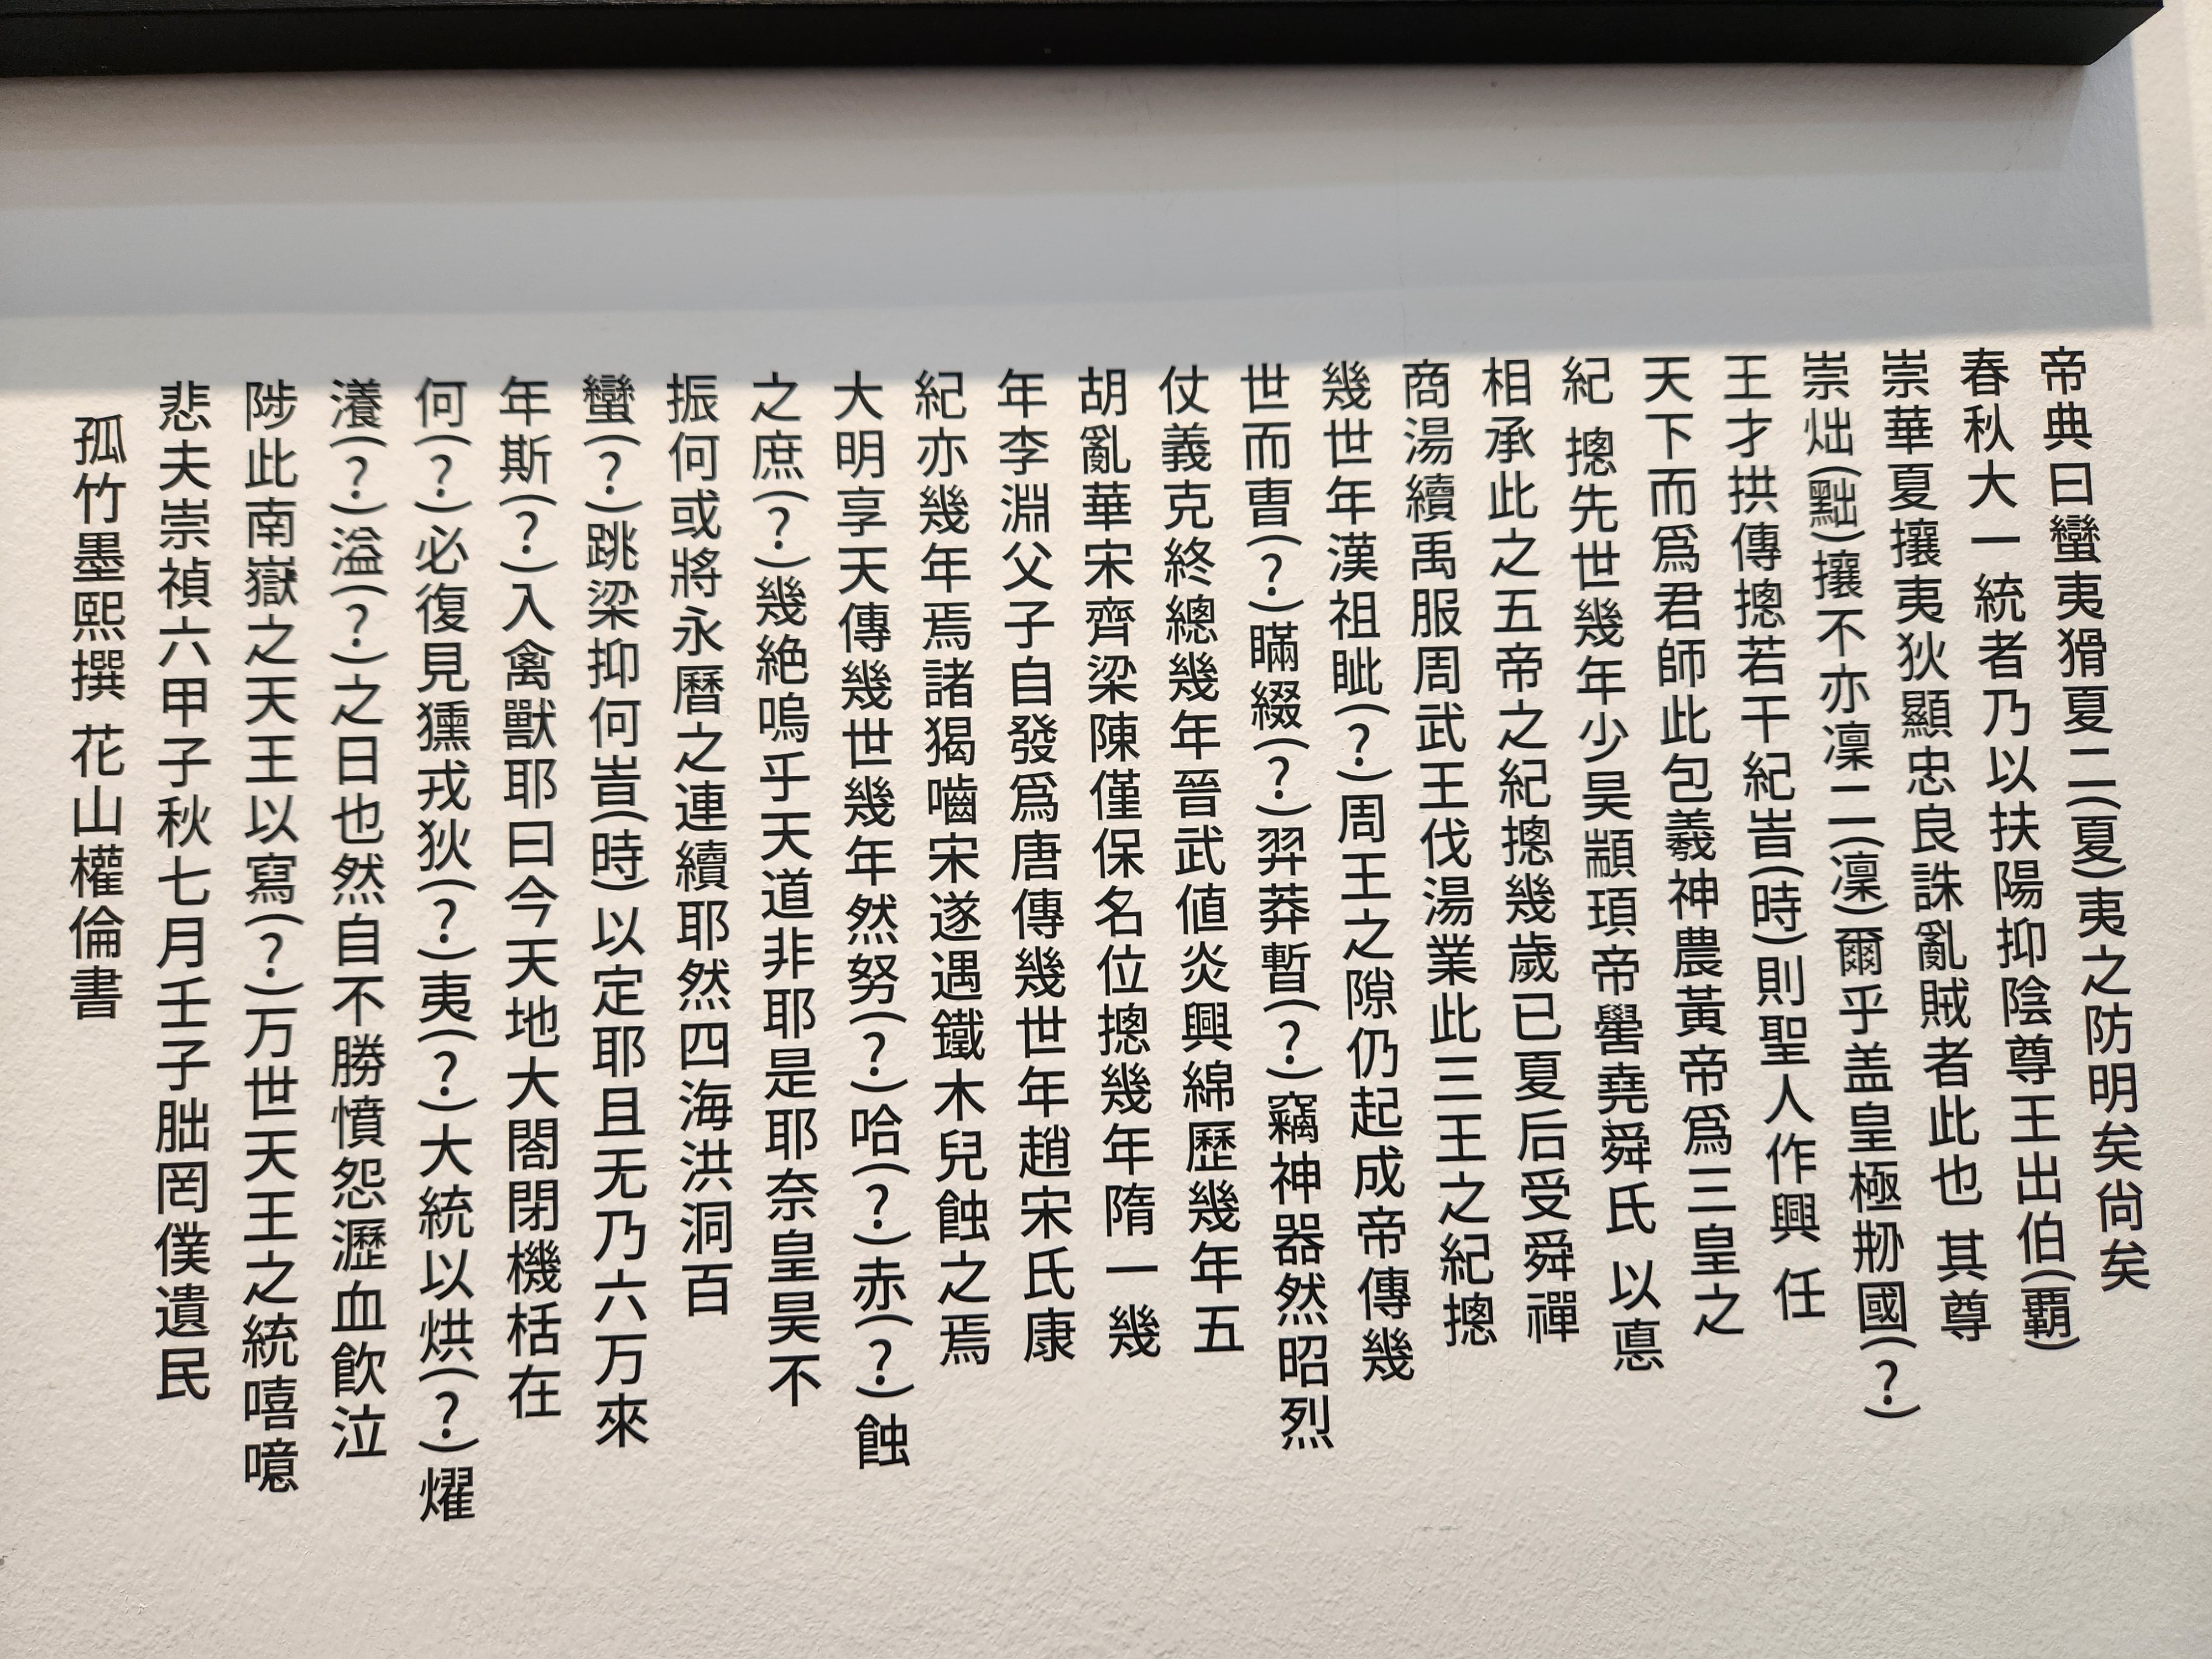 帝典曰蠻夷猾夏二(夏)夷之防明矣尙矣
春秋大一統者乃以扶陽抑陰尊王出伯(覇)
崇華夏攘夷狄顯忠良誅亂賊者此也 其尊
崇炪(黜)攘不亦凜二(凜)爾乎盖皇極刱國(?)
王才拱傳摠若干紀旹(時)則聖人作興 任
天下而爲君師此包羲神農黃帝爲三皇之
紀 摠先世幾年少昊顓頊帝嚳堯舜氏 以悳
相承此之五帝之紀摠幾歲已夏后受舜禪
商湯續禹服周武王伐湯業此三王之紀摠
幾世年漢祖眦(?)周王之隙仍起成帝傳幾
世而曺(?)瞞綴(?)羿莽暫(?)竊神器然昭烈
仗義克終總幾年晉武値炎興綿歷幾年五
胡亂華宋齊梁陳僅保名位摠幾年隋一幾
年李淵父子自發爲唐傳幾世年趙宋氏康
紀亦幾年焉諸猲嚙宋遂遇鐵木兒蝕之焉
大明享天傳幾世幾年然努(?)哈(?)赤(?)蝕
之庶(?)幾絶嗚乎天道非耶是耶奈皇昊不
振何或將永曆之連續耶然四海洪洞百
蠻(?)跳梁抑何旹(時)以定耶且无乃六万來
年斯(?)入禽獸耶曰今天地大閤閉機栝在
何(?)必復見獯戎狄(?)夷(?)大統以烘(?)燿
瀁(?)溢(?)之日也然自不勝憤怨瀝血飮泣
陟此南嶽之天王以寫(?)万世天王之統嘻噫
悲夫崇禎六甲子秋七月壬子朏罔僕遺民
孤竹墨熙撰 花山權倫書